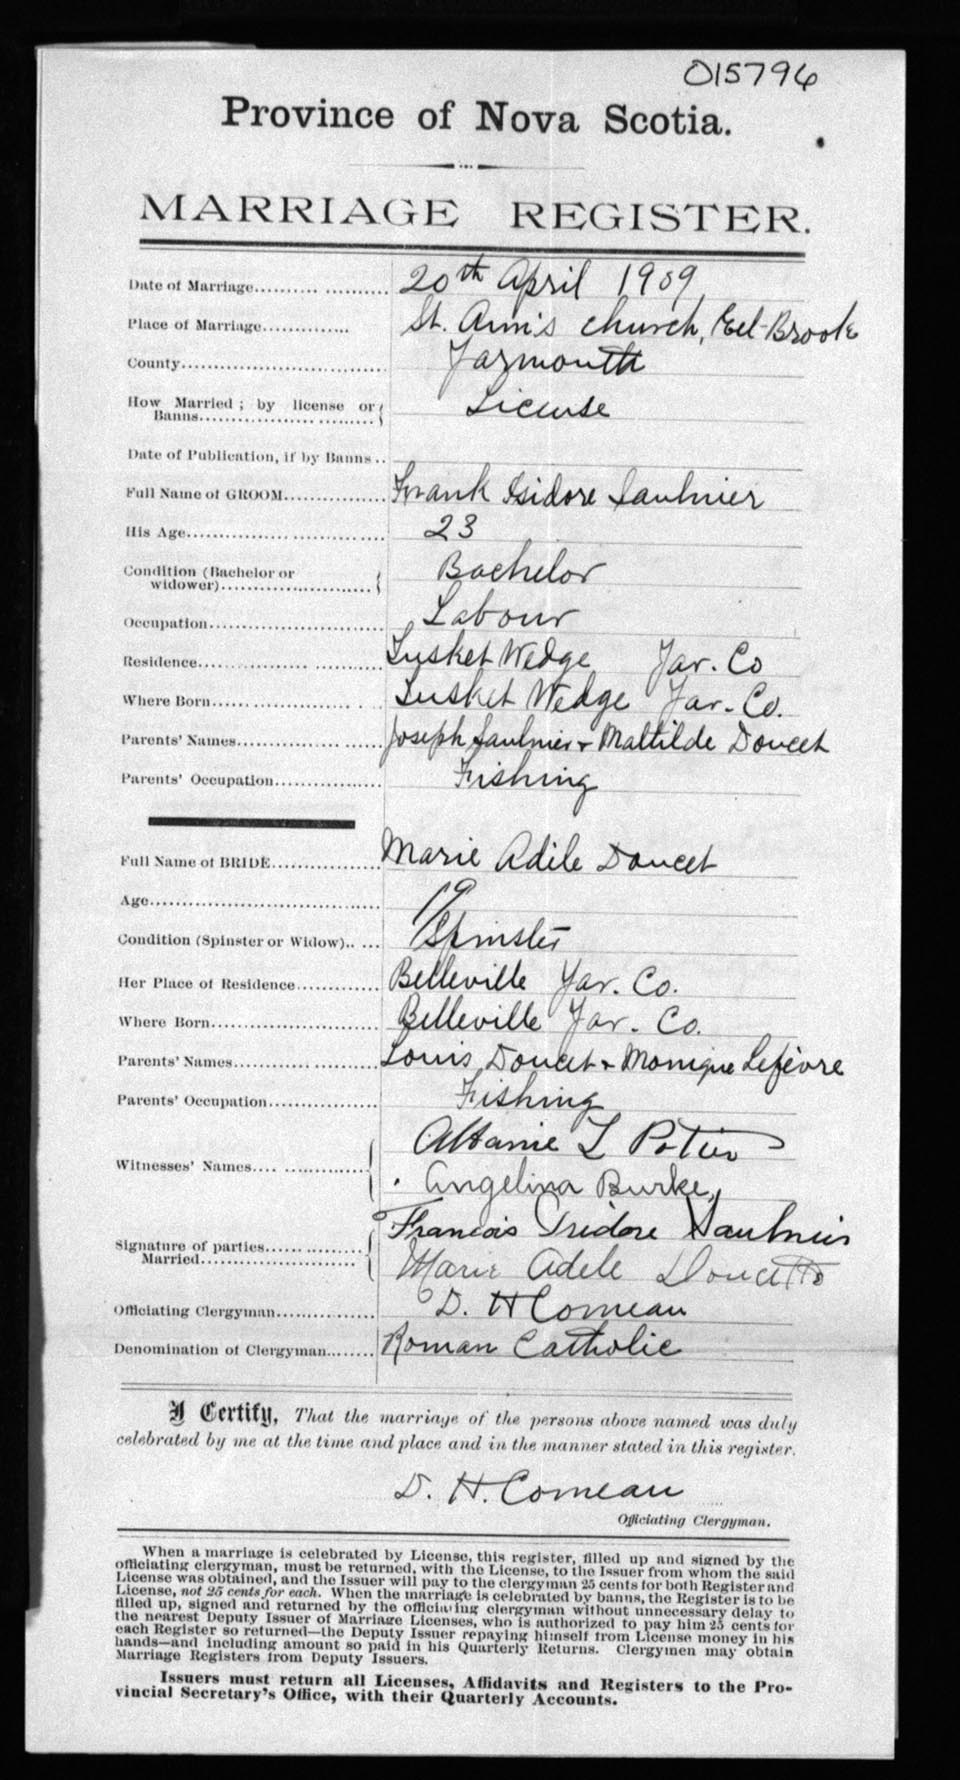 015796
Province of Nova Scotia.
MARRIAGE REGISTER.
Date of Marriage.................... 20th April 1909
Place of Marriage............. St. Ann's church, Eel-Brook
County................................. Yarmouth
How Married; by license or Banns........................ License
Date of Publication, if by Banns..
Full Name of GROOM............... Frank Isidore Saulnier
His Age................................ 23
Condition (Bachelor or widower)...................... Bachelor
Occupation............................. Labour
Residence........................... Tusket Wedge Yar. Co
Where Born...................... Tusket Wedge Yar. Co.
Parents' Names...................... Joseph Saulnier + Mattilde Doucet
Parents' Occupation................ Fishing
Full Name of BRIDE................ Marie Adile Doucet
Age..................................... 19
Condition (Spinster or Widow)..... Spinster
Her Place of Residence............ Belleville Yar. Co.
Where Born........................ Belleville Yar. Co.
Parents' Names..................... Louis Doucet + Monique Lefèvre
Parents' Occupation................ Fishing
Witnesses' Names.................. L Potier
Angelina Burke,
Signature of parties Married................... Francois Isidore Saulnier
Marie Adele Doucette
Officiating Clergyman............... D. H Comeau
Denomination of Clergyman....... Roman Catholic
I Certify, That the marriage of the persons above named was duly
celebrated by me at the time and place and in the manner stated in this register.
D. H. Comeau
Officiating Clergyman.
When a marriage is celebrated by License, this register, filled up and signed by the
officiating clergyman, must be returned, with the License, to the Issuer from whom the said
License was obtained, and the Issuer will pay to the clergyman 25 cents for both Register and
License, not 25 cents for each. When the marriage is celebrated by banns, the Register is to be
filled up, signed and returned by the officiating clergyman without unnecessary delay to
the nearest Deputy Issuer of Marriage Licenses, who is authorized to pay him 25 cents for
each Register so returned—the Deputy Issuer repaying himself from License money in his
hands—and including amount so paid in his Quarterly Returns. Clergymen may obtain
Marriage Registers from Deputy Issuers.
Issuers must return all Licenses, Affidavits and Registers to the Pro-
vincial Secretary's Office, with their Quarterly Accounts.